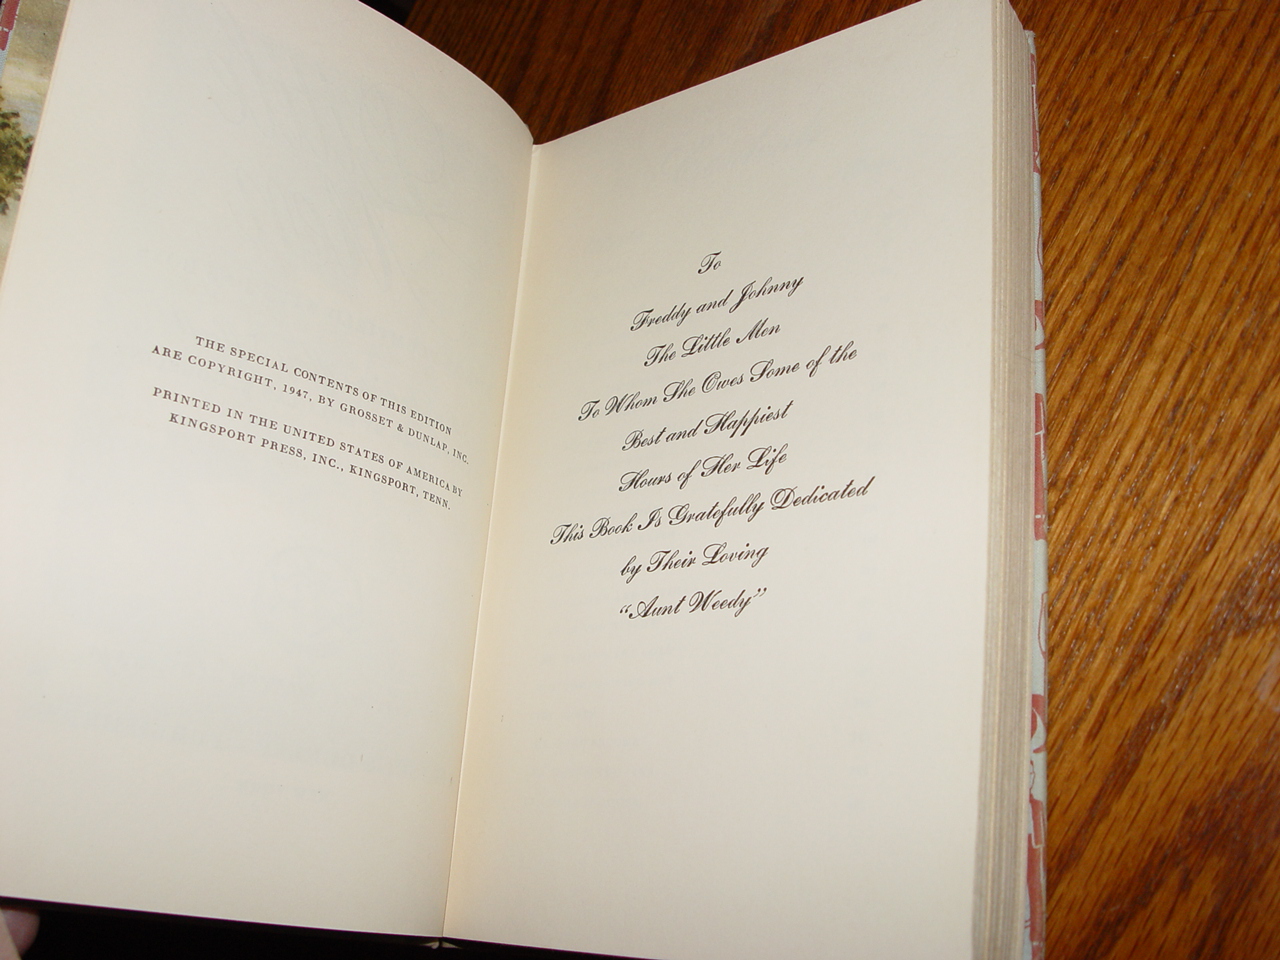 THE SPECIAL CONTENTS OF THIS EDITION
ARE COPYRIGHT, 1947, BY GROSSET & DUNLAP, INC.
PRINTED IN THE UNITED STATES OF AMERICA BY
KINGSPORT PRESS, INC., KINGSPORT, TENN.
To
Freddy and Johnny
The Little Men
To Whom She Owes Some of the
Best and Happiest
Hours of Her Life
This Book Is Gratefully Dedicated
by Their Loving
“Aunt Weedy”